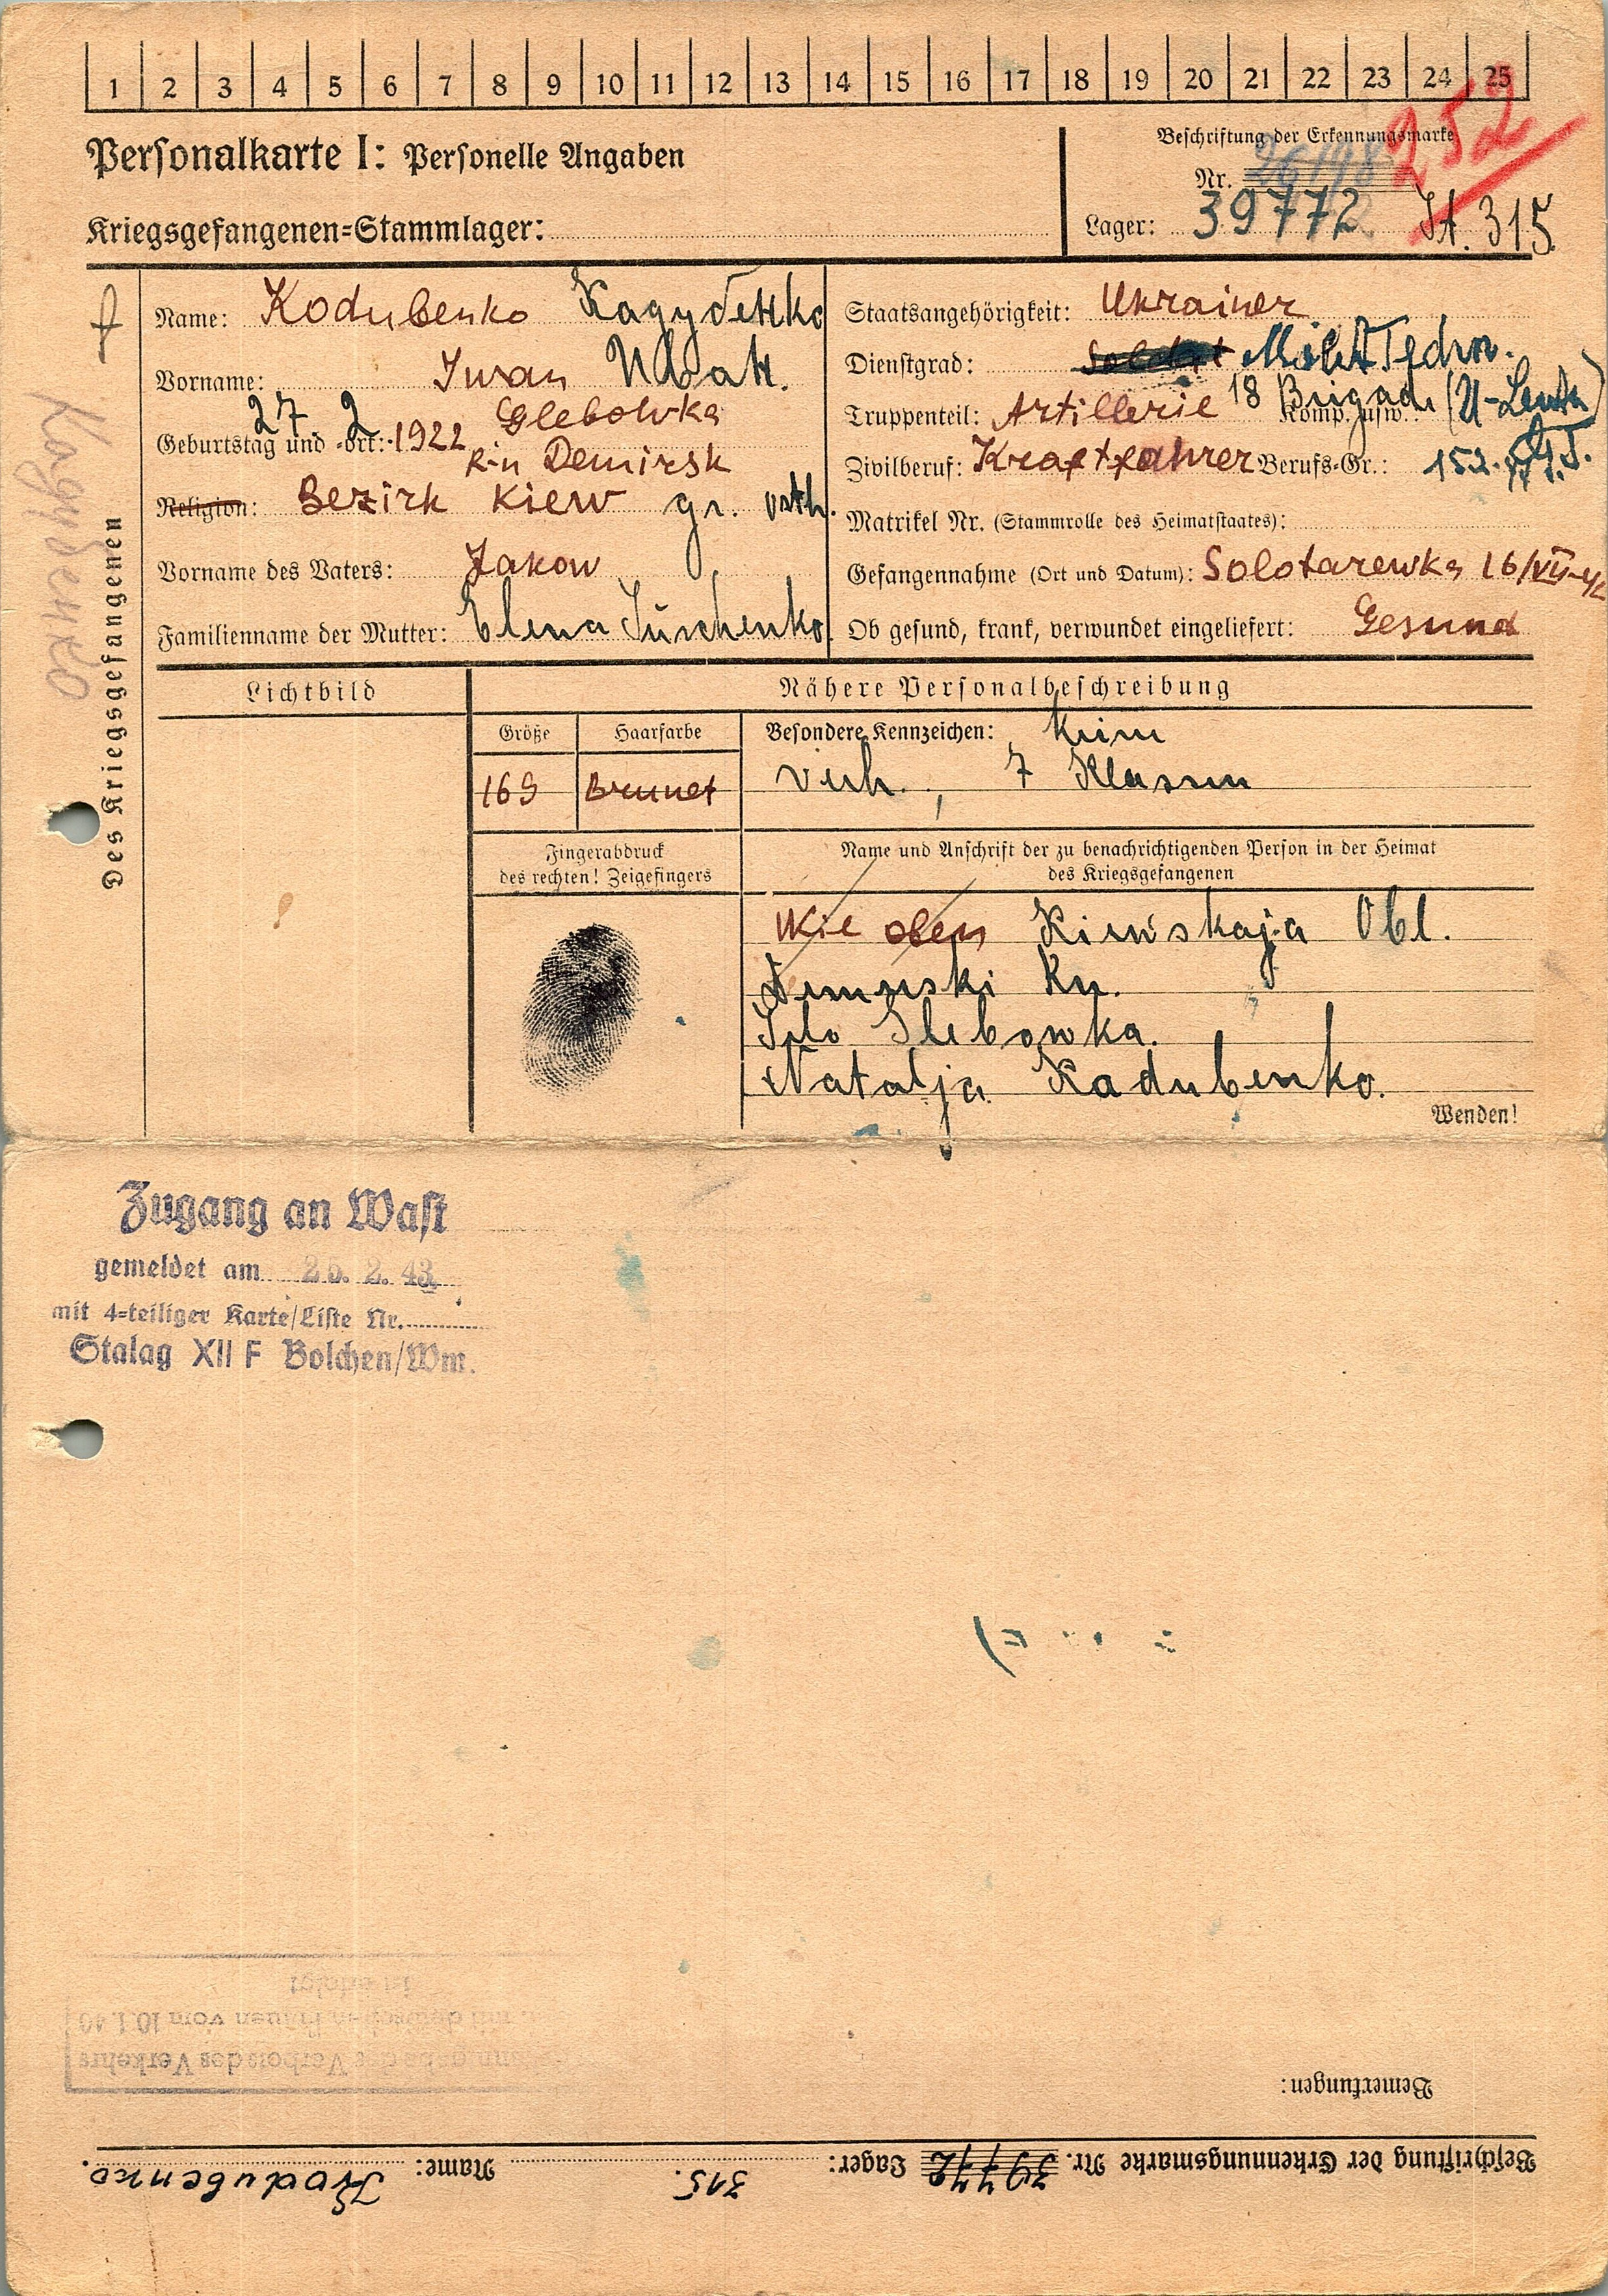 1 2 3 4 5 6 7 8 9 10 11 12 13 14 15 16 17 18 19 20 21 22 23 24 25
252
Personalkarte I: Personelle Angaben
Beschriftung der Erkennungsmarke
Nr. 26198
Kriegsgefangenen-Stammlager:
Lager: 39772 St. 315
Des Kriegsgefangenen
Кадубенко
Name: Kodubenko Кадубенко
Vorname: Iwan Иван.
Geburtstag und -ort: 27. 2. 1922 Glebowka
R-n Demirsk
Religion: Bezirk Kiew gr. orth.
Vorname des Vaters: Jakow
Familienname der Mutter: Elena Juschenko.
Staatsangehörigkeit: Ukrainer
Dienstgrad: Soldat
Truppenteil: Artillerie 18 Brigade Komp. usw.:
Zivilberuf: Kraftfahrer Berufs-Gr.: 152.
Matrikel Nr. (Stammrolle des Heimatstaates):
Gefangennahme (Ort und Datum): Solotarewka 16/VII-42
Ob gesund, krank, verwundet eingeliefert: Gesund
Lichtbild
Nähere Personalbeschreibung
Größe Haarfarbe
169 Brunet
Besondere Kennzeichen: keine
verh., 7 Klassen
Fingerabdruck
des rechten! Zeigefingers
Name und Anschrift der zu benachrichtigenden Person in der Heimat
des Kriegsgefangenen
Wie oben Kiewskaja Obl.
Rn.
Selo Glebowka.
Natalja Kadubenko.
Wenden!
Zugang an Wast
gemeldet am 25. 2. 43
mit 4-teiliger Karte/Liste Nr.
Stalag XII F Bolchen/Wm.
Bemerkungen:
Beschriftung der Erkennungsmarke Nr. 39772 Lager: 315. Name: Kodubenko.